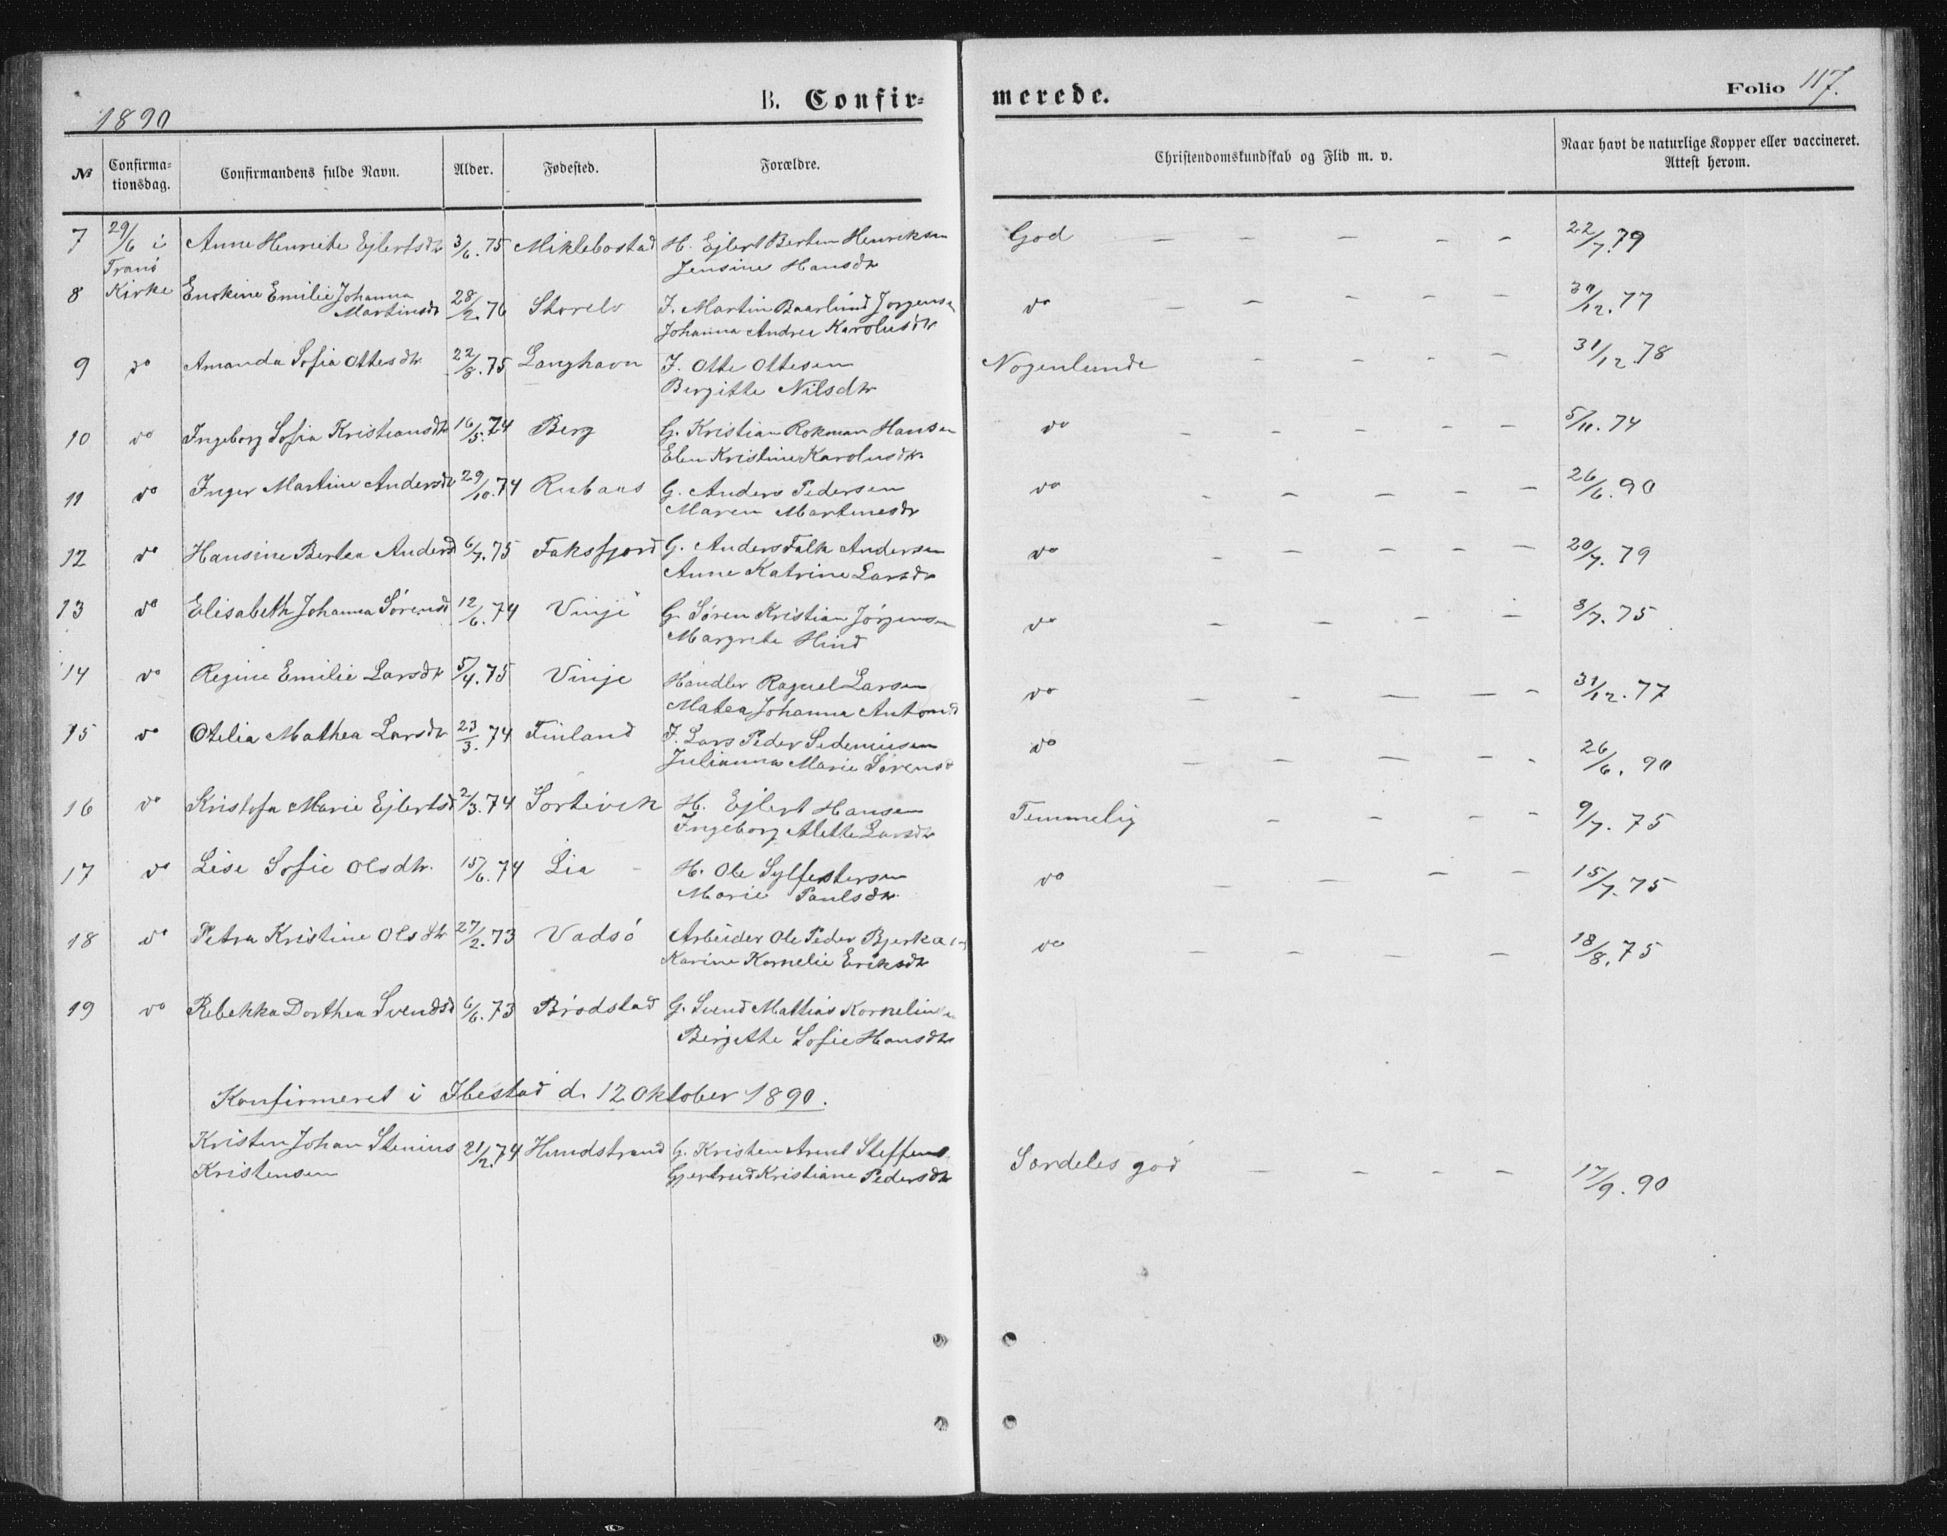 1890
B. Confir-
merede.
Folio 117.
№ Confirma-tionsdag. Confirmandens fulde Navn. Alder. Fødested. Forældre. Christendomskundskab og Flid m. v. Naar havt de naturlige Kopper eller vaccineret. Attest herom.
7 29/6 i Anne Henriete Ejlertsdtr 3/6.75 Miklebostad H. Ejlert Berten Henriksen God — — — — — 22/7.79
Tranø Jensine Hansdtr
8 Kirke Enokine Emilie Johanna 28/2.76 Storelv F. Martin Baarlund Jørgensen do — — — — — 30/12.77
Martinsdtr Johanna Andrea Karolusdtr
9 do Amanda Sofia Ottesdtr. 22/8.75 Langhavn F. Otte Ottesen Nogenlunde — — — — 31/12.78
Bergitte Nilsdtr
10 do Ingeborg Sofia Kristiansdtr 16/5.74 Berg G. Kristian Rokman Hansen do — — — — — 5/11.74
Elen Kristine Karolusdtr.
11 do Inger Martine Andersdtr 29/10.74 Rubaas G. Anders Pedersen do — — — — — 26/6.90
Maren Martinesdtr
12 do Hansine Bertea Andersd 6/7.75 Faksfjord G. Anders Falk Andersen do — — — — — 20/7.79
Anne Katrine Larsdtr
13 do Elisabeth Johanna Sørensd 12/6.74 Vinje G. Søren Kristian Jørgensen do — — — — 8/7.75
Margrete Hind
14 do Regine Emilie Larsdtr 5/4.75 Vinje Handler Raguel Larsen do — — — — — 31/12.77
Matea Johanna Antonsd
15 do Otelia Mathea Larsdtr 23/3.74 Finland F. Lars Peder Sedeniusen do — — — — — 26/6.90
Julianna Marie Sørensd
16 do Kristofa Marie Ejlertsd 2/3.74 Sørtevik H. Ejlert Hansen Temmelig — — — — 9/7.75
Ingeborg Alette Larsdtr
17 do Lise Sofie Olsdtr. 15/6.74 Lia H. Ole Sylfestersen do — — — — 15/7.75
Marie Paulsdtr.
18 do Petra Kristine Olsdtr 27/2.73 Vadsø Arbeider Ole Peder Bjerkaas do — — — — 18/8.75
Karine Kornelie Eriksdtr
19 do Rebekka Dorthea Svendsd 6/6.73 Brødstad G. Svend Mathias Kornelius
Bergitte Sofie Hansdtr
Konfirmeret i Ibestad d. 12 Oktober 1890.
Kristen Johan Stenius 21/2.74 Hundstrand G. Kristen Arent Steffens. Særdeles god — — — — 17/9.90
Kristensen Gjertrud Kristiane Pedersdtr